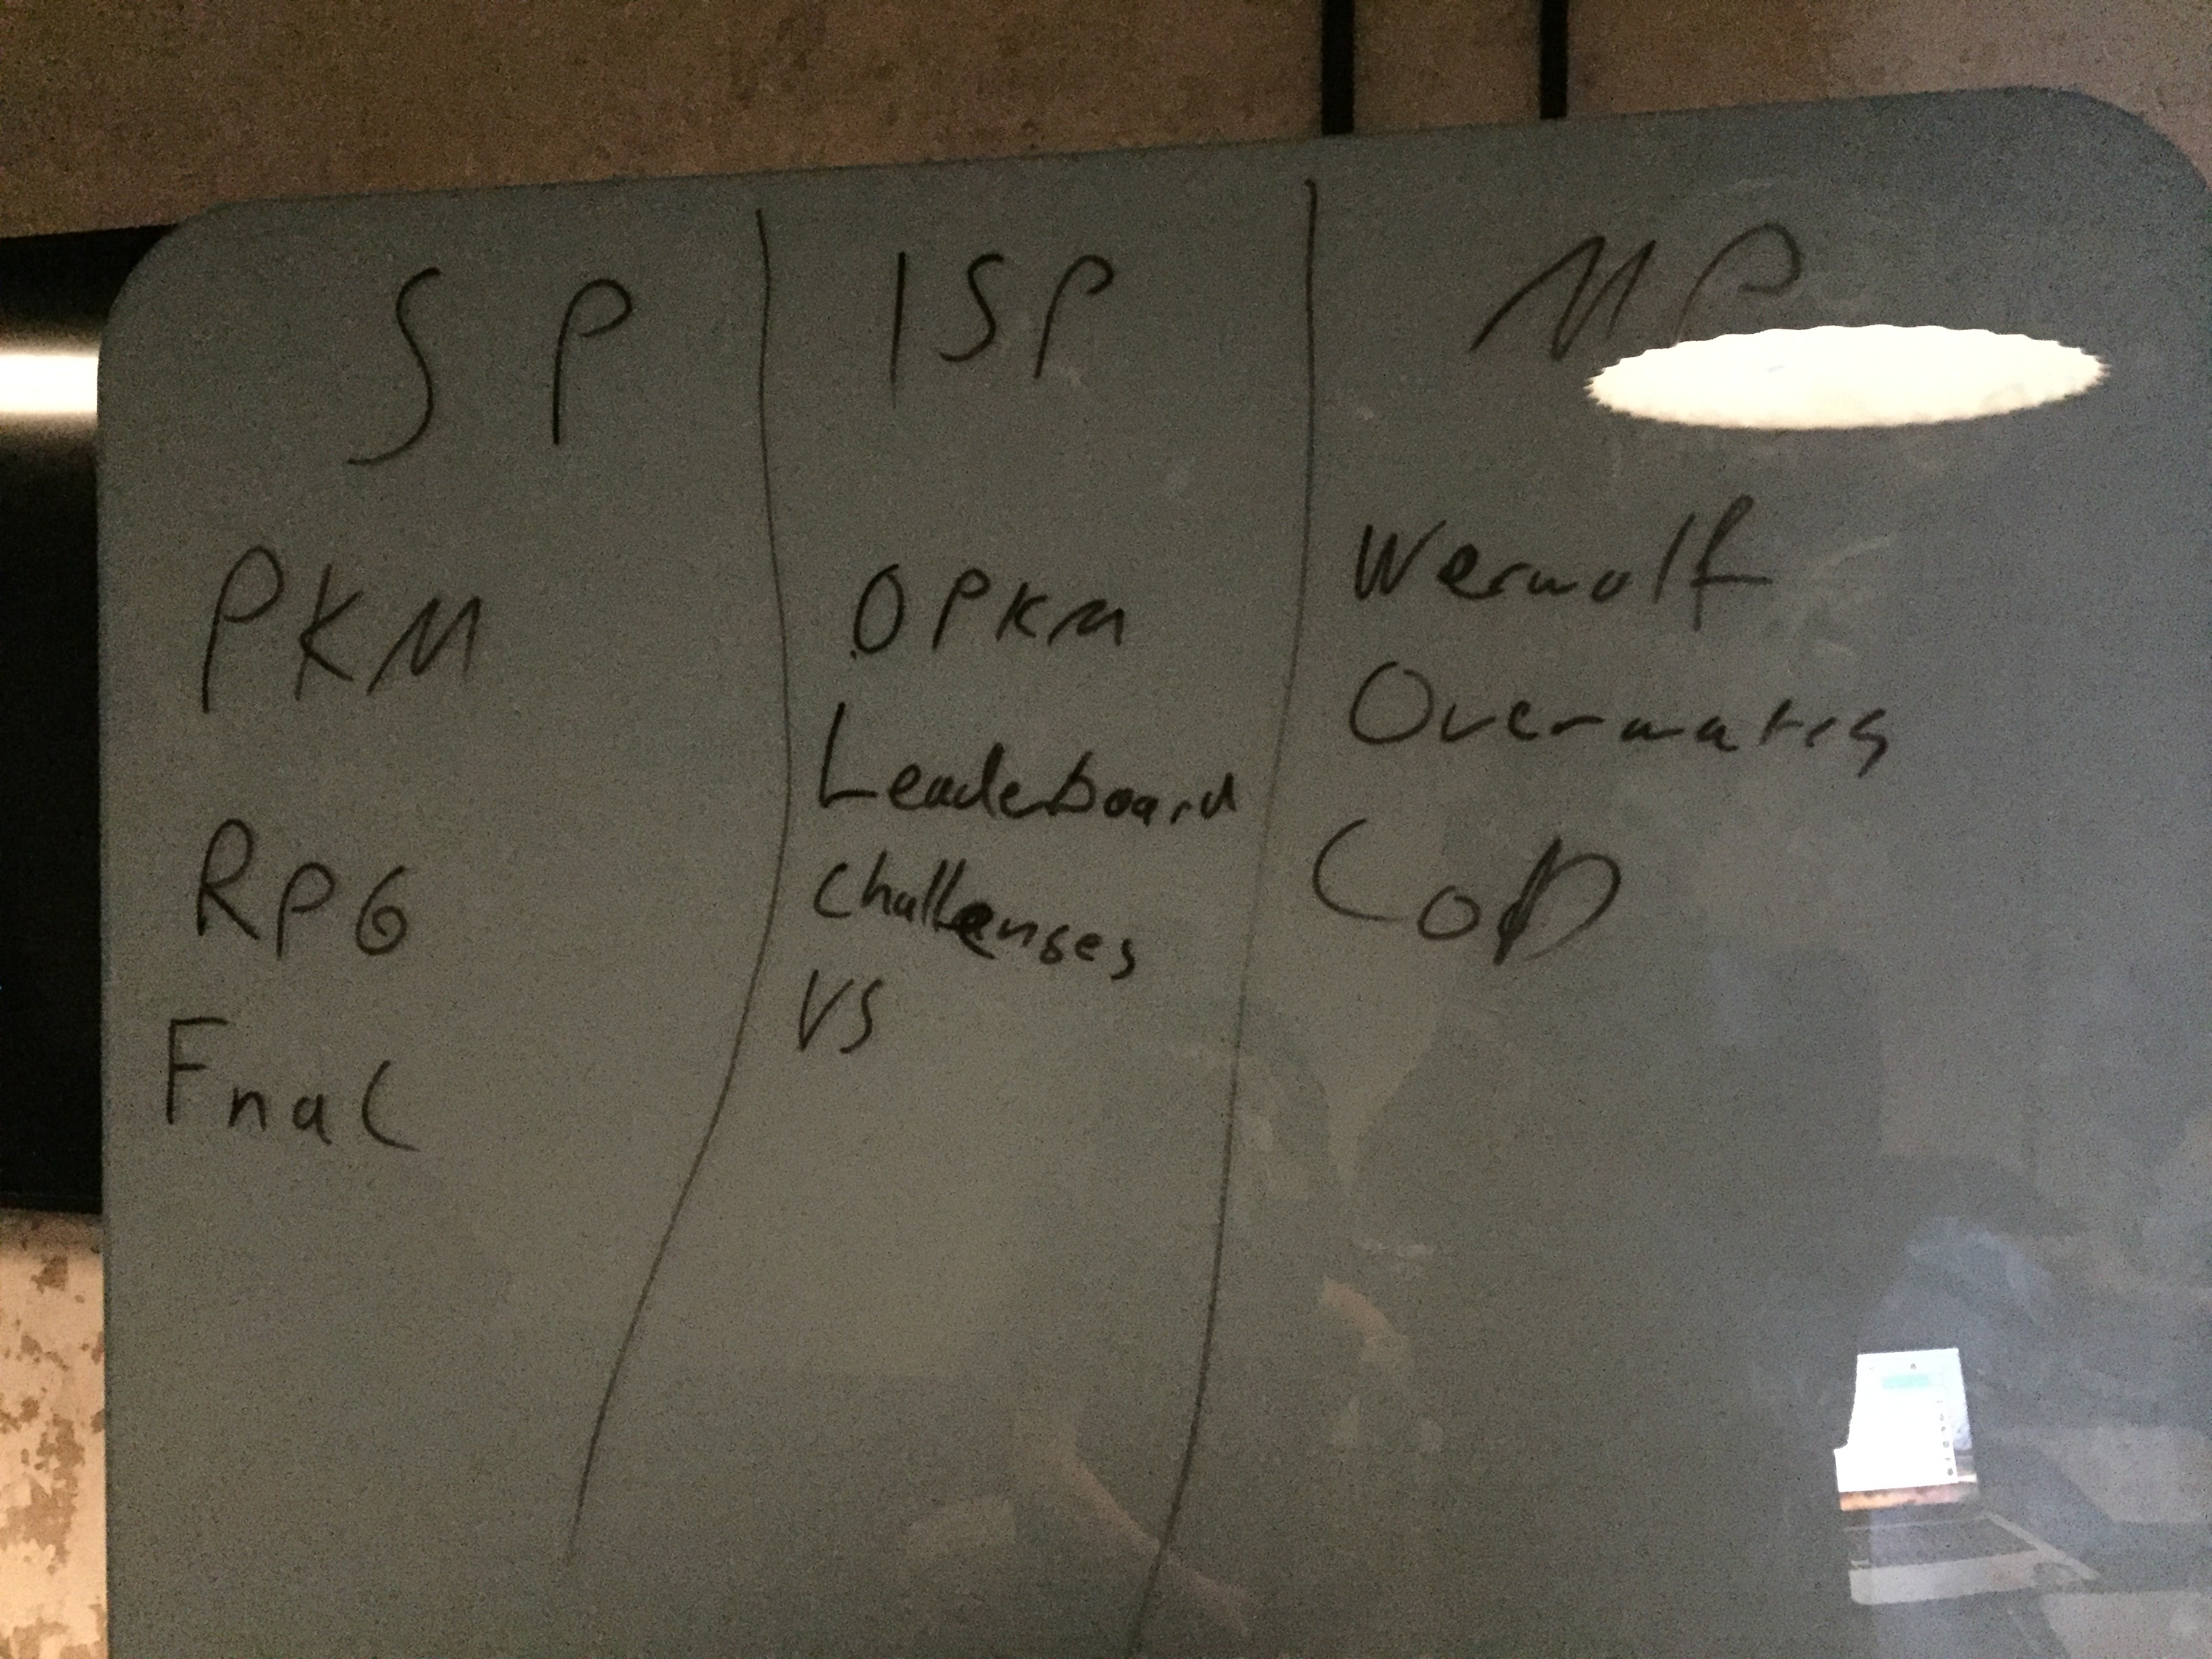 SP
PKM
RPG
FnaC
ISP
OPKM
Leaderboard
Challenges
VS
MP
Werwolf
Overwatch
CoD